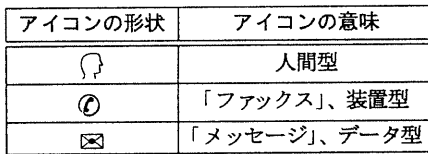 アイコンの形状 アイコンの意味
人間型
「ファックス」、装置型
「メッセージ」、データ型